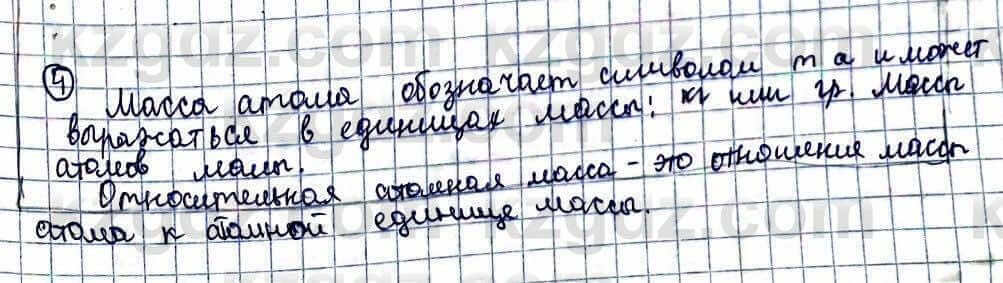 4 Масса атома обозначает символом m a и может
выражаться в единицах массы: кг или гр. Массы
атомов малы.
Относительная атомная масса - это отношения массы
атома к атомной единице массы.
kzgdz.com kzgdz.com kzgdz.com